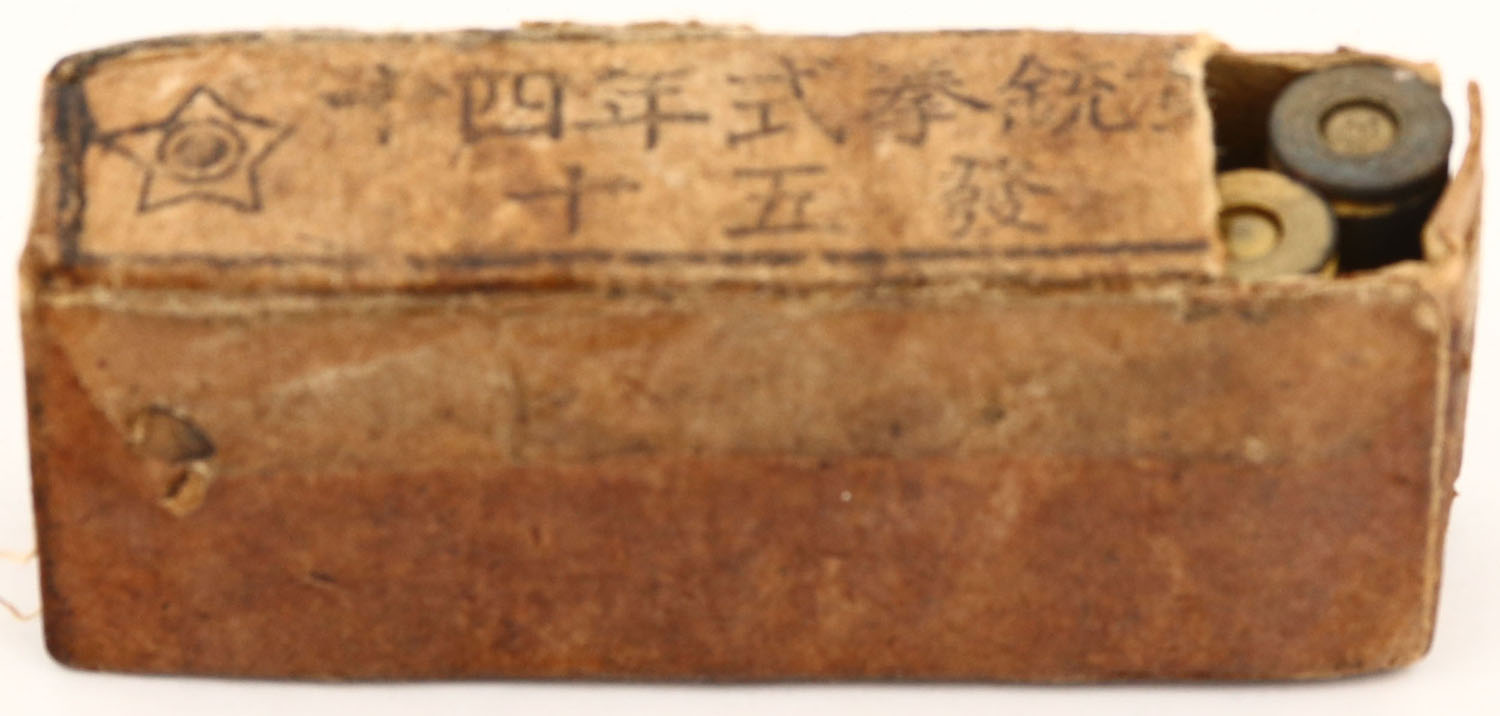 十四年式拳銃
十五發